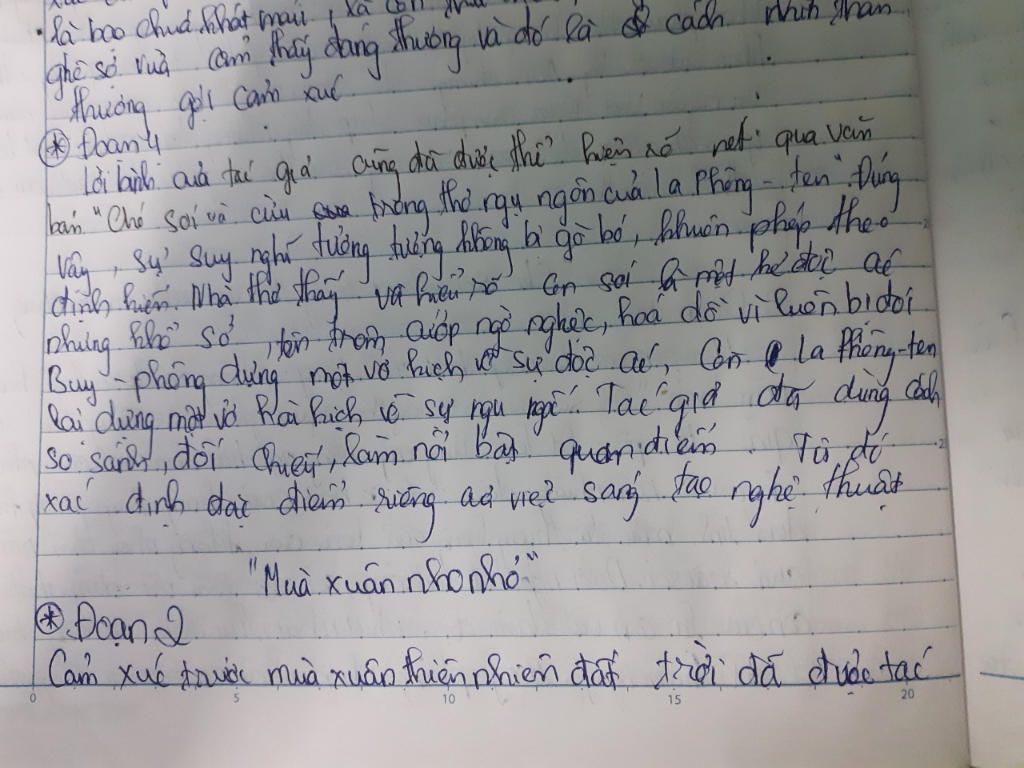 là bao chuá khát máu, xả
ghê sợ vừa cảm thấy đáng thương và đó là cách nhìn thân
thương gợi cảm xúc
* Đoạn 4
Lời bình của tác giả cũng đã được thể hiện rõ nét qua văn
bản "Chó sói và cừu trong thơ ngụ ngôn của La Phông-ten" Đúng
vậy, sự suy nghĩ tưởng tượng không bị gò bó, khuôn phép theo
định kiến. Nhà thơ thấy và hiểu rõ con sói là một kẻ độc ác
nhưng khổ sở, tên trộm cướp ngờ nghệc, hoá dồ vì luôn bị đói
Buy-phông dựng một vở kịch về sự độc ác, Còn La Phông-ten
lại dựng một vở hài kịch về sự ngu ngốc. Tác giả đã dùng cách
so sánh, đối chiếu, làm nổi bật quan điểm. Từ đó
xác định đặc điểm riêng của việc sáng tạo nghệ thuật
"Mùa xuân nho nhỏ"
* Đoạn 2
Cảm xúc trước mùa xuân thiên nhiên đất trời đã được tác
0 5 10 15 20